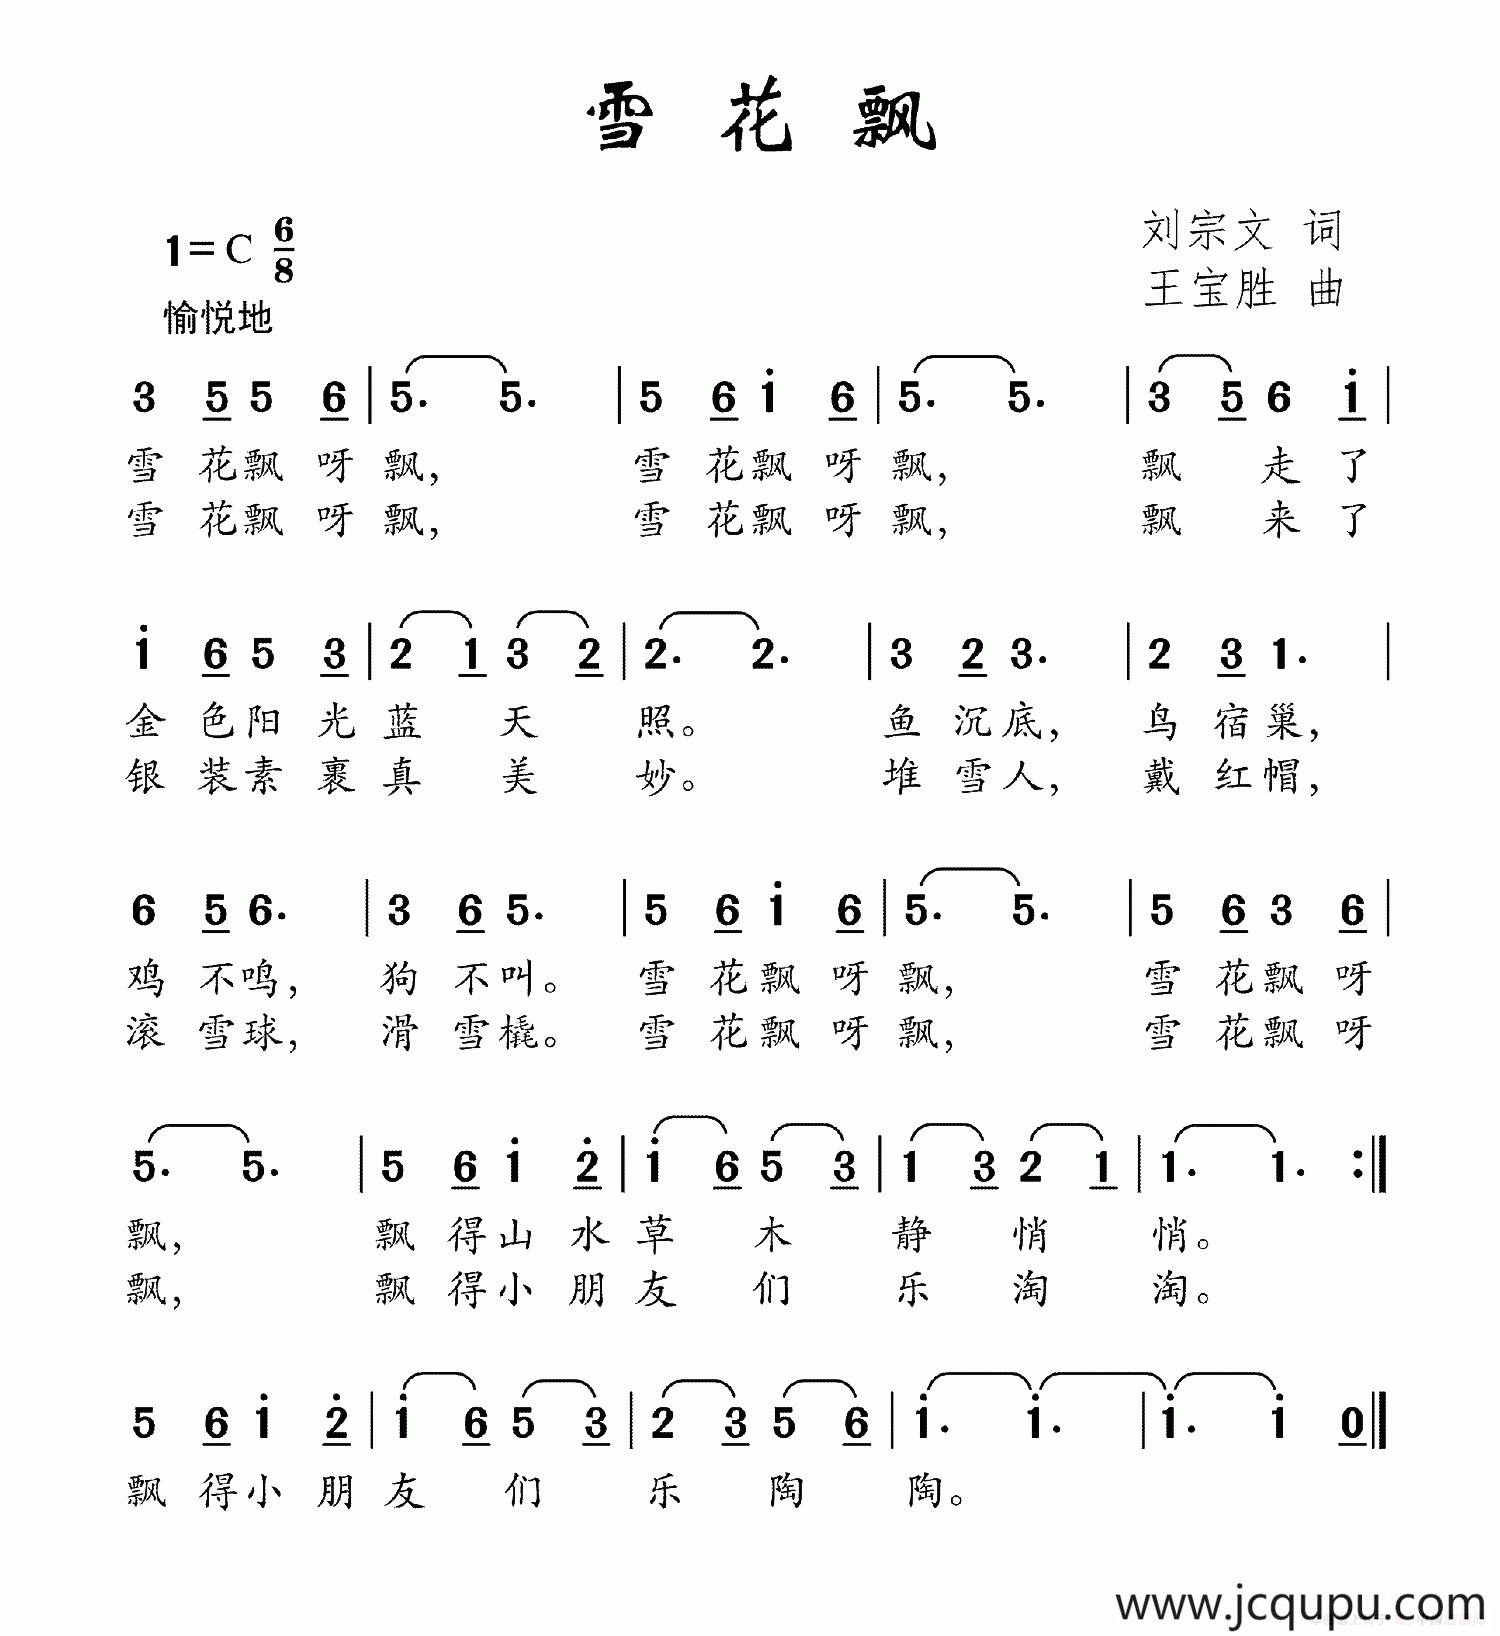 雪花飘
刘宗文 词
1=C 6/8
王宝胜 曲
愉悦地
3 5 5 6 | 5. 5. | 5 6 i 6 | 5. 5. | 3 5 6 i |
雪花飘呀飘, 雪花飘呀飘, 飘走了
雪花飘呀飘, 雪花飘呀飘, 飘来了
i 6 5 3 | 2 1 3 2 | 2. 2. | 3 2 3. | 2 3 1. |
金色阳光蓝天照。 鱼沉底, 鸟宿巢,
银装素裹真美妙。 堆雪人, 戴红帽,
6 5 6. | 3 6 5. | 5 6 i 6 | 5. 5. | 5 6 3 6 |
鸡不鸣, 狗不叫。 雪花飘呀飘, 雪花飘呀
滚雪球, 滑雪橇。 雪花飘呀飘, 雪花飘呀
5. 5. | 5 6 i 2̇ | i 6 5 3 | 1 3 2 1 | 1. 1. :||
飘, 飘得山水草木静悄悄。
飘, 飘得小朋友们乐淘淘。
5 6 i 2̇ | i 6 5 3 | 2 3 5 6 | i. i. | i. i 0 ||
飘得小朋友们乐陶陶。
www.jcqupu.com